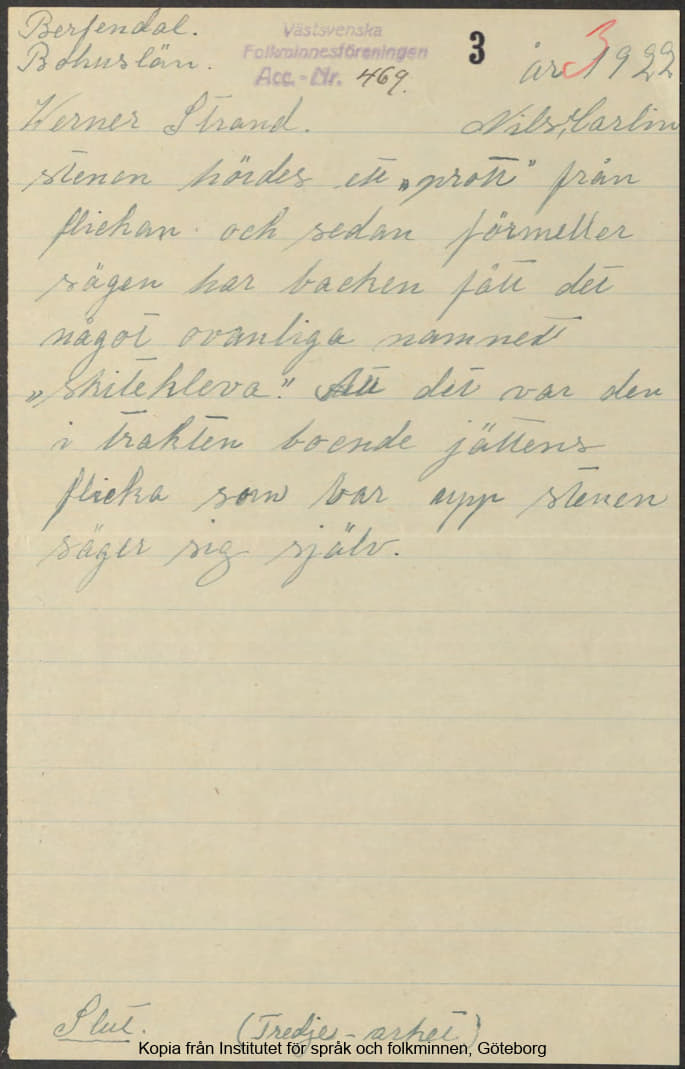 Berfendal.
Bohuslän.
Västsvenska
Folkminnesföreningen
Acc. - Nr. 469.
3
3
år 1922
Werner Strand. Nils Carlin
stenen hördes ett „prott" från
flickan och sedan förmeller
sägen har backen fått det
något ovanliga namnett
„skitekleva." Att det var den
i trakten boende jättens
flicka som bar upp stenen
säger sig själv.
Slut. (Tredje - arket)
Kopia från Institutet för språk och folkminnen, Göteborg